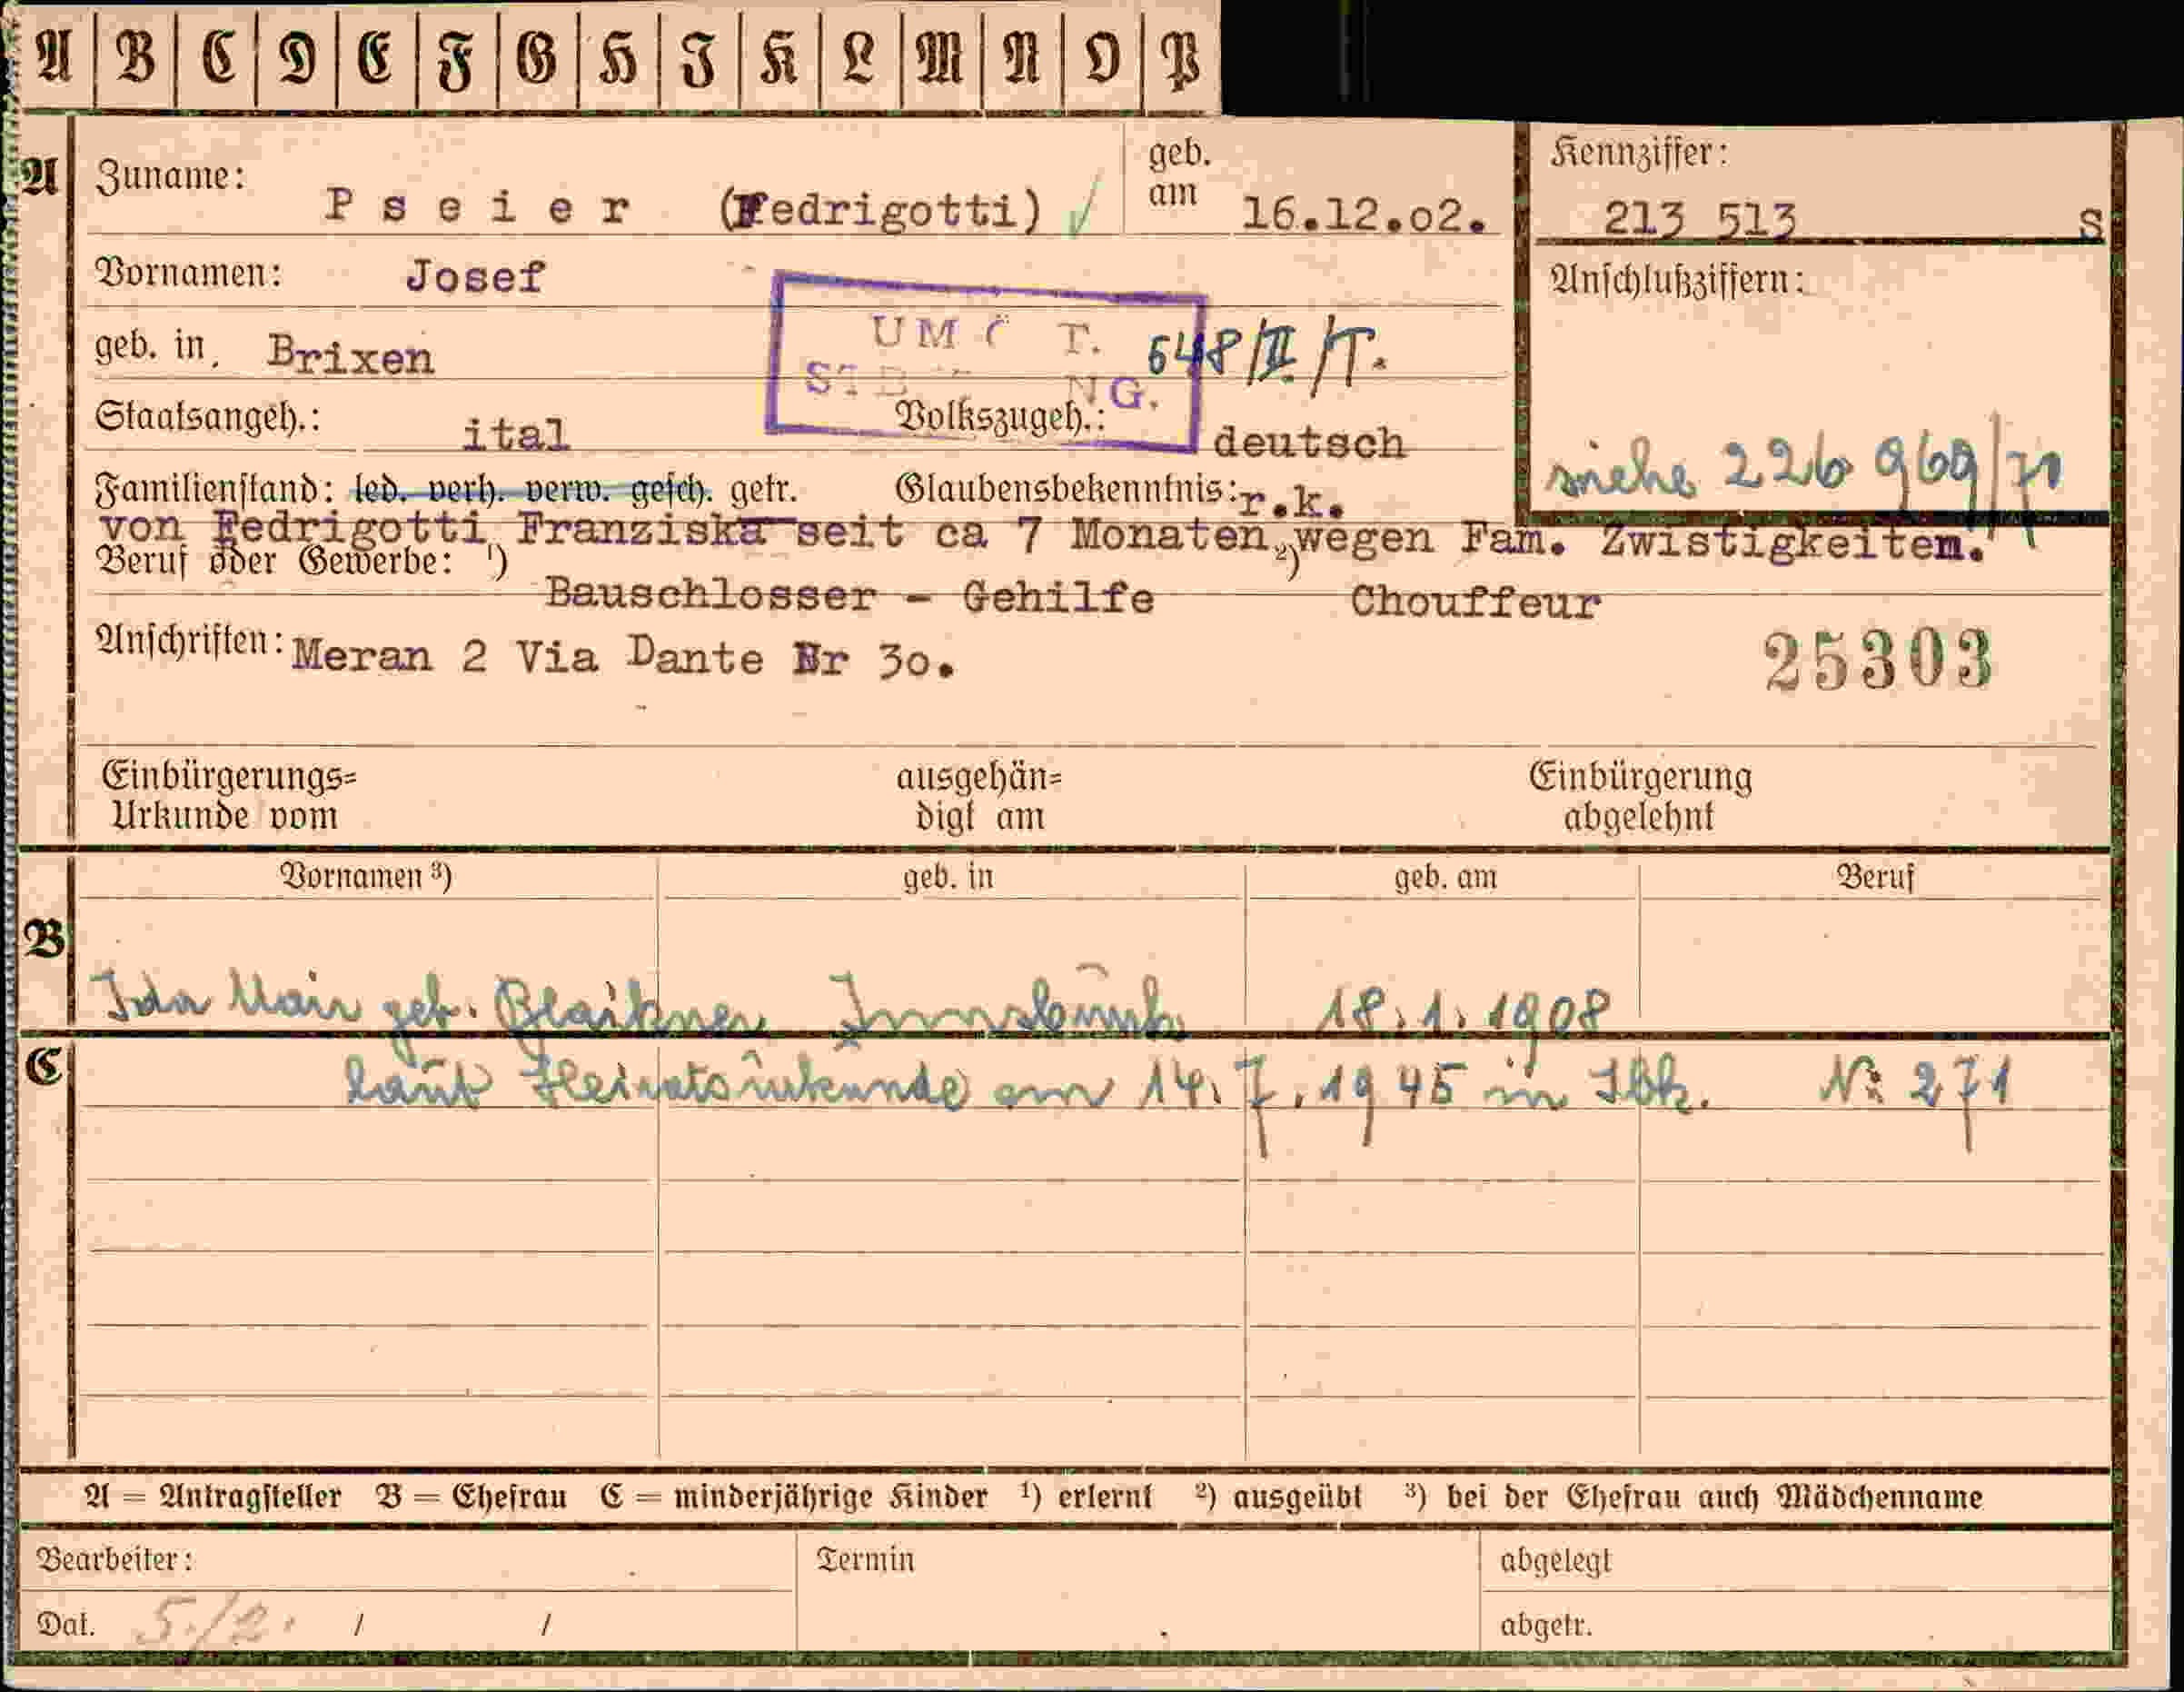 A B C D E F G H I K L M N O P
A Zuname: Pseier (Fedrigotti) geb. am 16.12.02. Kennziffer: 213 513 S
Vornamen: Josef Anschlußziffern:
geb. in Brixen 648/II/T.
Staatsangeh.: ital Volkszugeh.: deutsch
siehe 226 969/70
Familienstand: led. verh. verw. gesch. getr. Glaubensbekenntnis: r.k.
von Fedrigotti Franziska seit ca 7 Monaten, wegen Fam. Zwistigkeiten.
Beruf oder Gewerbe: ¹) Bauschlosser - Gehilfe ²) Chouffeur
Anschriften: Meran 2 Via Dante Nr 30.
25303
Einbürgerungs= Urkunde vom ausgehän= digt am Einbürgerung abgelehnt
Vornamen ³) geb. in geb. am Beruf
B
Ida Mair geb. Blaikner Innsbruck 18.1.1908
C laut Heiratsurkunde am 14.7.1945 in Ibk. Nr 271
A = Antragsteller B = Ehefrau C = minderjährige Kinder ¹) erlernt ²) ausgeübt ³) bei der Ehefrau auch Mädchenname
Bearbeiter: Termin abgelegt
Dat. 5./2. / / abgetr.